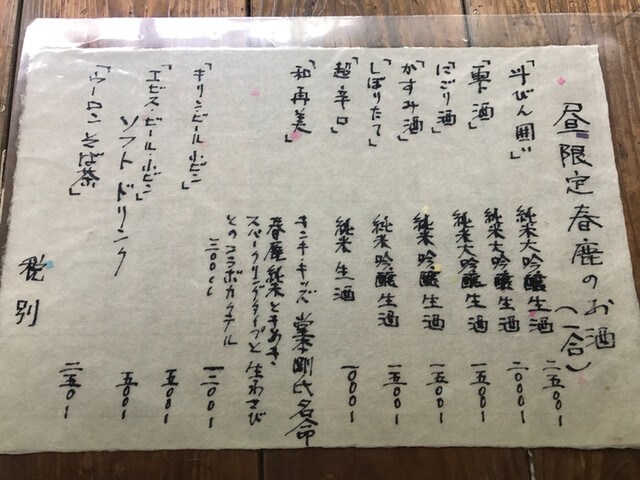 昼限定春鹿のお酒（一合）
「斗びん囲い」 純米大吟醸生酒 二五〇〇ー
「雫酒」 純米大吟醸生酒 二〇〇〇ー
「にごり酒」 純米大吟醸生酒 一五〇〇ー
「かすみ酒」 純米吟醸生酒 一五〇〇ー
「しぼりたて」 純米吟醸生酒 一五〇〇ー
「超辛口」 純米生酒 一〇〇〇ー
「和再美」 キンキキッズ 堂本剛氏名命
春鹿純米ときめき
スパークリングタイプと生わさび
とのコラボカクテル
三〇〇cc
「キリンビール小ビン」 五〇〇ー
「エビス・ビール・小ビン」 五〇〇ー
ソフトドリンク
「ウーロンそば茶」 二五〇ー
税別